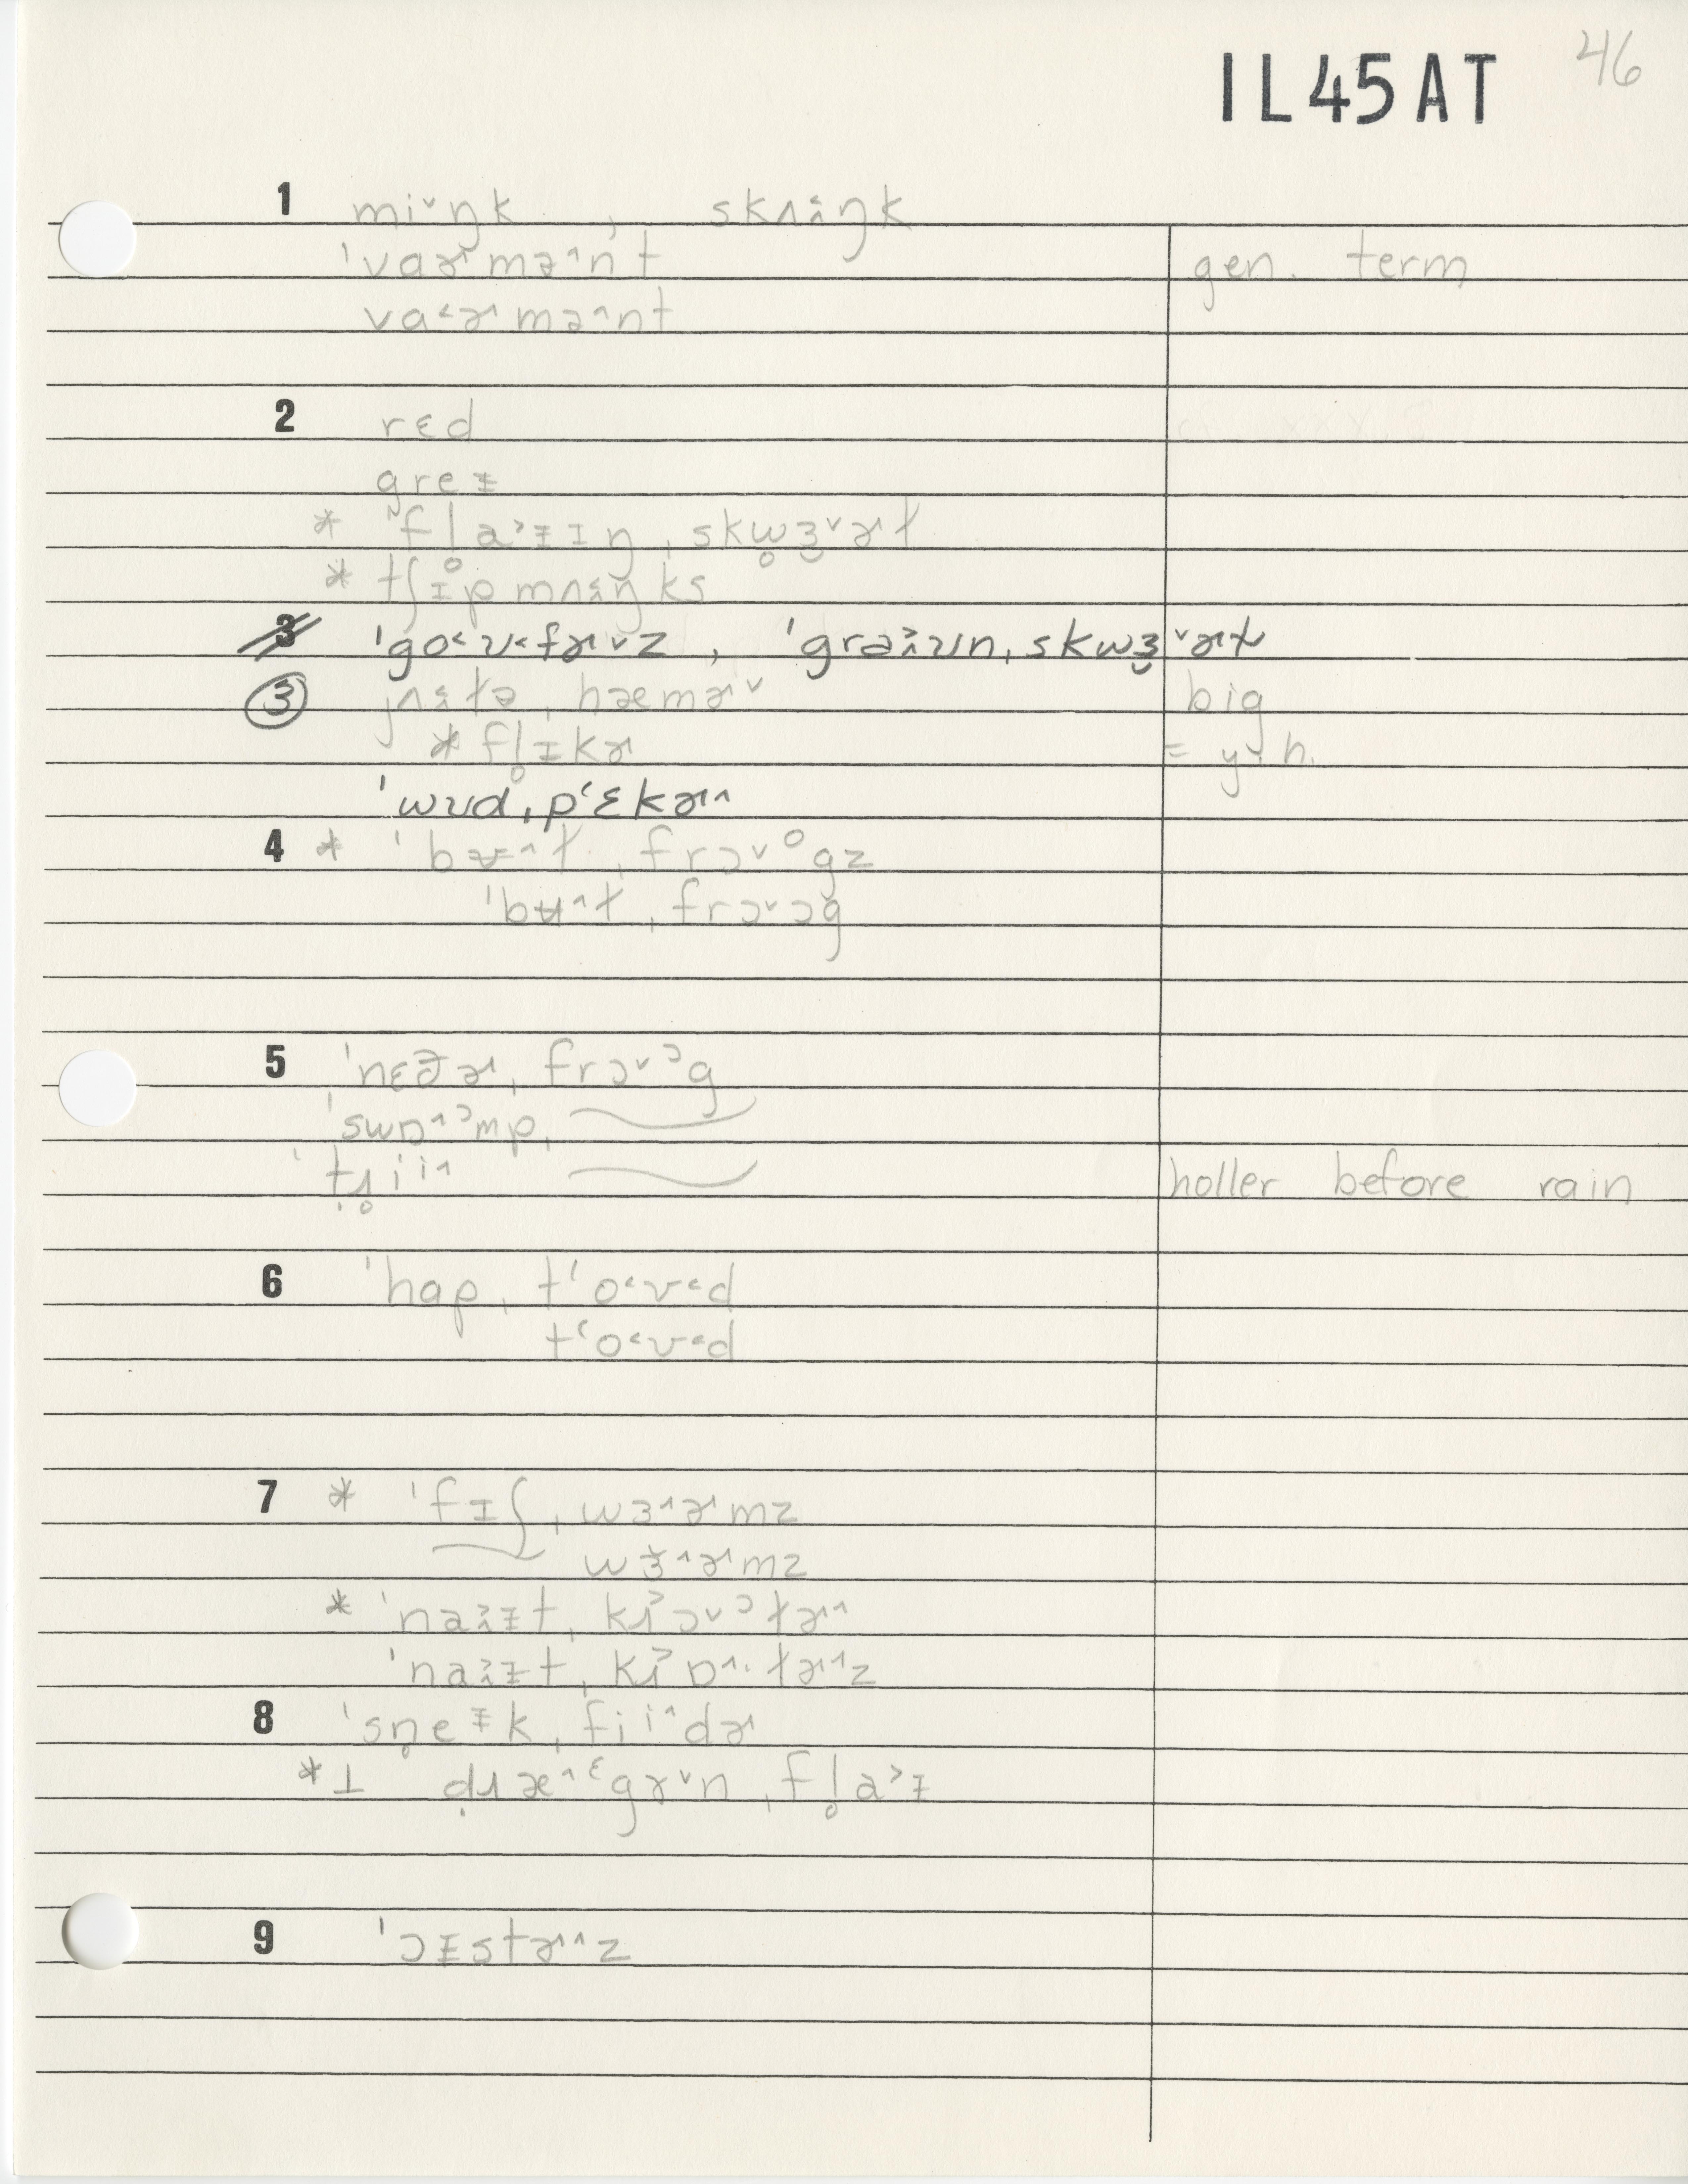 46
IL45AT
1 miᵛŋk , skʌɨ̂ŋk
ˈvaɚmə^nt gen. term
va˂ɚmə^nt
2 rɛd
greɪ
* ˈfl̥a˃ɪɪŋˌskw̥ɜᵛɚɫ
* tʃɪpmʌɨ̂ŋks
3 ˈgo˂ʊ˂fɚᵛz , ˈgraʊnˌskwɜᵛɚɫ
3 jʌɨ̂ɫəˌhæmɚᵛ big
* fl̥ɪkɚ = y. h.
ˈwʊdˌpʻɛkɚ^
4 * ˈbʊ^ɫˌfrɔᵛᵒgz
ˈbʊ^ɫˌfrɔᵛɔg
5 ˈnɛðɚˌfrɔᵛᵓg
ˈswɒ^ᵓmpˌ
ˈtɹ̥iⁱ^ holler before rain
6 ˈhapˌtʻo˂ʊ˂d
tʻo˂ʊ˂d
7 * ˈfɪʃˌwɜ^ɚmz
wɜ^ɚmz
* ˈnaɪtˌkɹɔᵛᵓɫɚ^
ˈnaɪtˌkɹɒ^·ɫɚ^z
8 ˈsn̥eɪkˌfiⁱ^dɚ
*⊥ dɹæ^ᵋgɚᵛnˌfl̥a˃ɪ
9 ˈɔɪstɚ^z